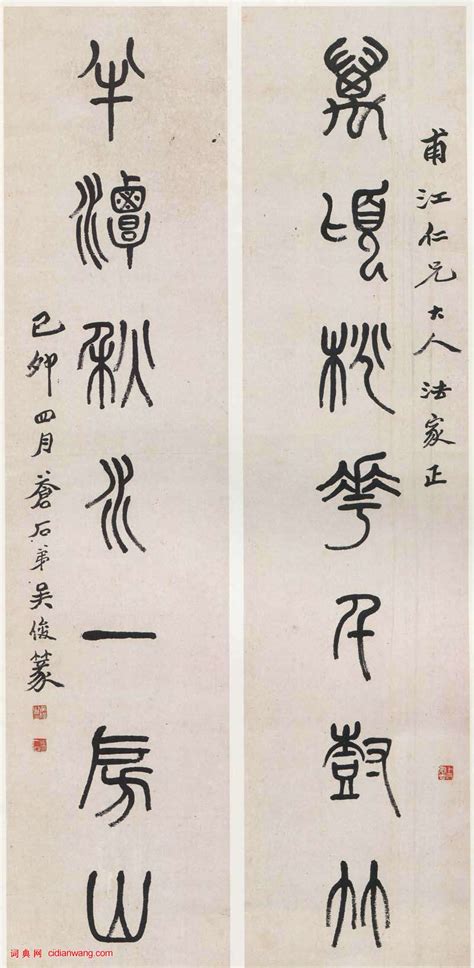 甫江仁兄大人法家正
萬頃桃花千尌竹
半潭秋水一房山
己卯四月蒼石弟吳俊篆
词典网 cidianwang.com